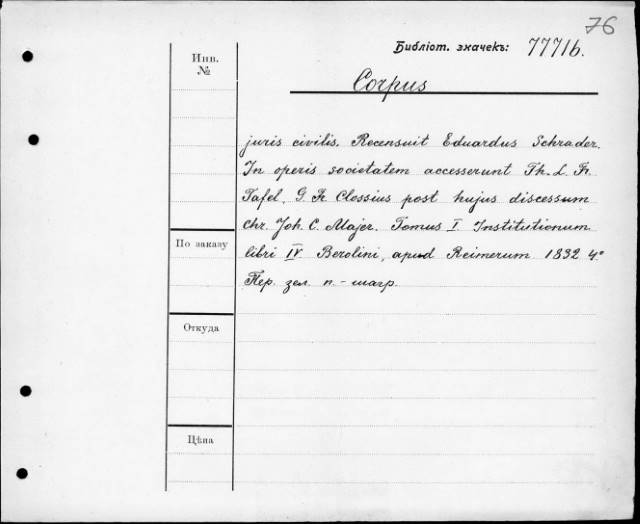 76
Библіот. значекъ: 7771б.
Инв.
№
Corpus
juris civilis. Recensuit Eduardus Schrader.
In operis societatem accesserunt Th. L. Fr.
Tafel, G. Fr Clossius post hujus discessum
Chr. Joh. C. Majer. Tomus I Institutionum
По заказу
libri IV Berolini, apud Reimerum 1832 4°
Пер. зел. п.-шагр.
Откуда
Цѣна